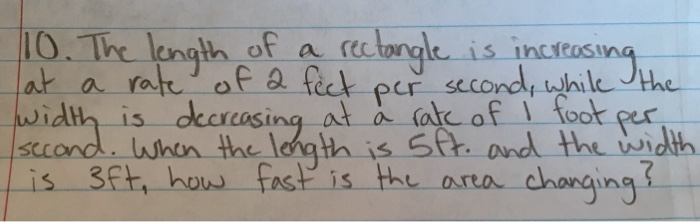 10. The length of a rectangle is increasing
at a rate of 2 feet per second, while the
width is decreasing at a rate of 1 foot per
second. When the length is 5ft. and the width
is 3ft, how fast is the area changing?